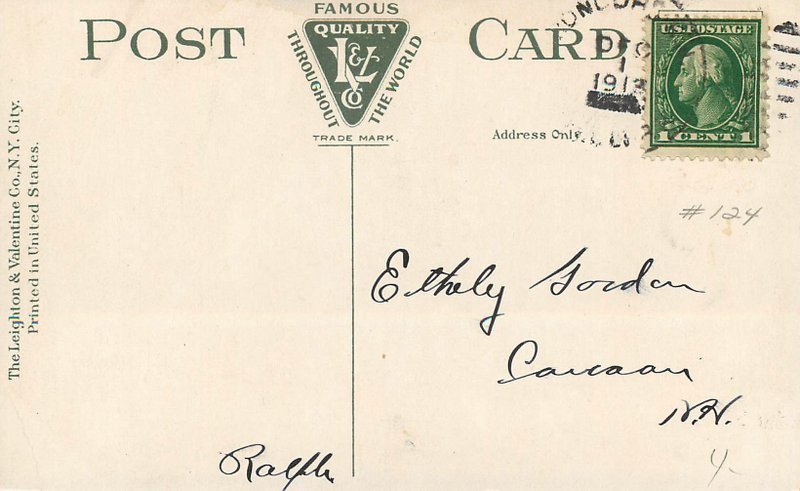 POST CARD
FAMOUS
QUALITY
THROUGHOUT THE WORLD
L & V Co
TRADE MARK.
DEC
1
U.S. POSTAGE
1 CENT 1
Address Only
#124
The Leighton & Valentine Co., N.Y. City.
Printed in United States.
Ethely Gordon
Canaan
N.H.
Ralph